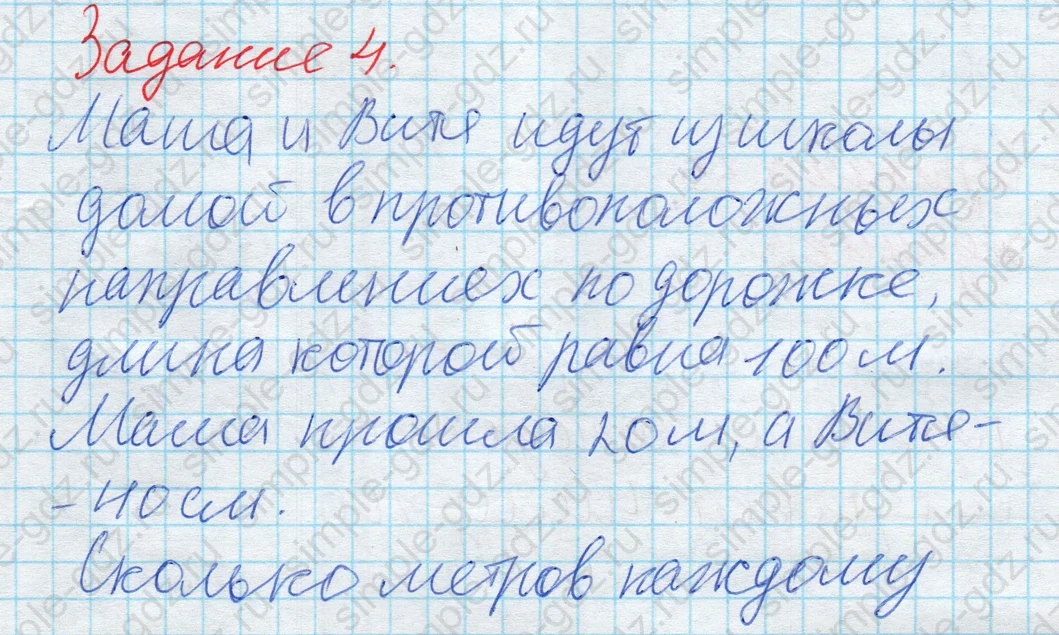 Задание 4.
Маша и Витя идут из школы
домой в противоположных
направлениях по дорожке,
длина которой равна 100 м.
Маша прошла 20 м, а Витя -
- 40 см.
Сколько метров каждому